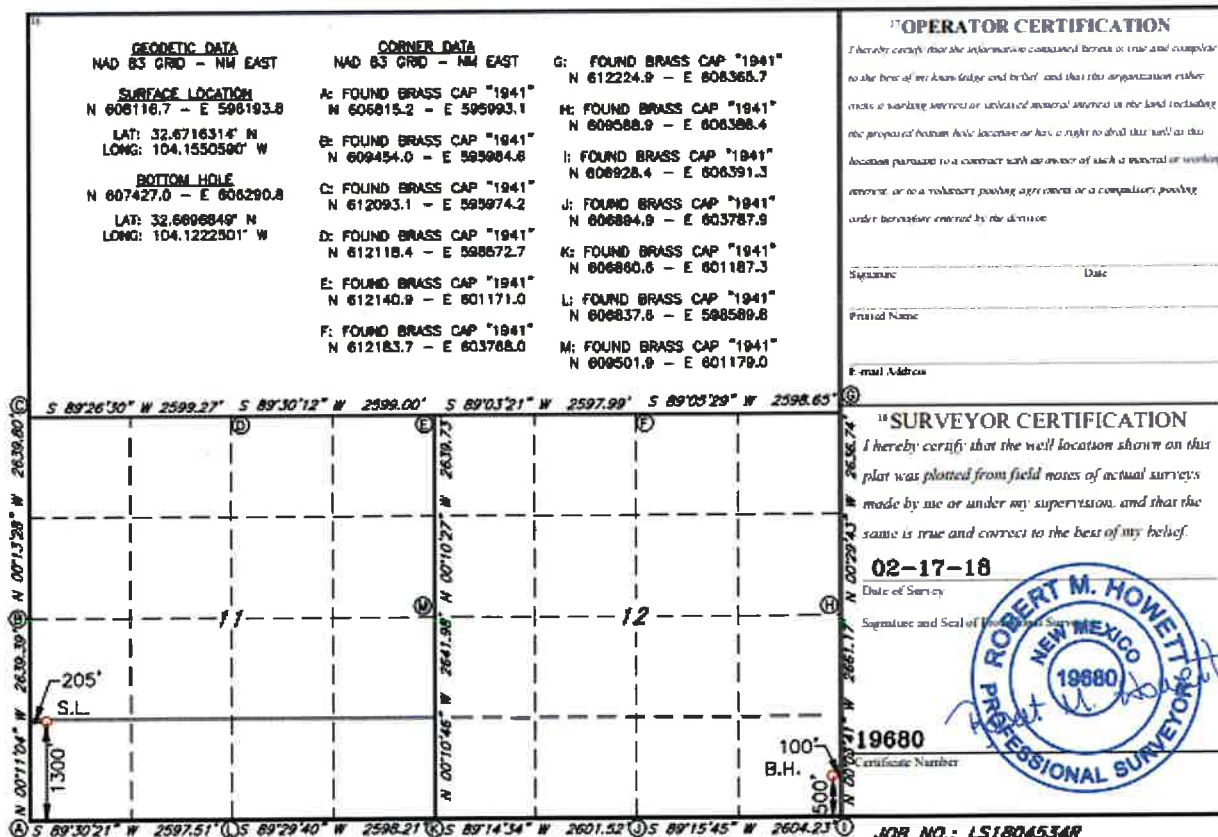 16
GEODETIC DATA
NAD 83 GRID - NM EAST
SURFACE LOCATION
N 608116.7 - E 596193.8
LAT: 32.6716314° N
LONG: 104.1550590° W
BOTTOM HOLE
N 607427.0 - E 606290.8
LAT: 32.6696849° N
LONG: 104.1222501° W
CORNER DATA
NAD 83 GRID - NM EAST
A: FOUND BRASS CAP "1941"
N 606815.2 - E 595993.1
B: FOUND BRASS CAP "1941"
N 609454.0 - E 595984.6
C: FOUND BRASS CAP "1941"
N 612093.1 - E 595974.2
D: FOUND BRASS CAP "1941"
N 612118.4 - E 598572.7
E: FOUND BRASS CAP "1941"
N 612140.9 - E 601171.0
F: FOUND BRASS CAP "1941"
N 612183.7 - E 603768.0
G: FOUND BRASS CAP "1941"
N 612224.9 - E 606365.7
H: FOUND BRASS CAP "1941"
N 609588.9 - E 606388.4
I: FOUND BRASS CAP "1941"
N 606928.4 - E 606391.3
J: FOUND BRASS CAP "1941"
N 606894.9 - E 603787.9
K: FOUND BRASS CAP "1941"
N 606860.6 - E 601187.3
L: FOUND BRASS CAP "1941"
N 606837.6 - E 598589.8
M: FOUND BRASS CAP "1941"
N 609501.9 - E 601179.0
17 OPERATOR CERTIFICATION
I hereby certify that the information contained herein is true and complete
to the best of my knowledge and belief, and that this organization either
owns a working interest or unleased mineral interest in the land including
the proposed bottom hole location or has a right to drill this well at this
location pursuant to a contract with an owner of such a mineral or working
interest, or to a voluntary pooling agreement or a compulsory pooling
order heretofore entered by the division.
Signature Date
Printed Name
E-mail Address
18 SURVEYOR CERTIFICATION
I hereby certify that the well location shown on this
plat was plotted from field notes of actual surveys
made by me or under my supervision, and that the
same is true and correct to the best of my belief.
02-17-18
Date of Survey
Signature and Seal of Professional Surveyor
ROBERT M. HOWETT
NEW MEXICO
19680
PROFESSIONAL SURVEYOR
Robert M. Howett
19680
Certificate Number
JOB NO.: LS1804534R
C S 89°26'30" W 2599.27' S 89°30'12" W 2599.00' S 89°03'21" W 2597.99' S 89°05'29" W 2598.65' G
D E F
N 00°13'28" W 2639.80'
N 00°10'27" W 2639.73'
N 00°29'43" W 2636.74'
B 11 M 12 H
N 00°11'04" W 2639.39'
N 00°10'46" W 2641.98'
N 00°03'47" W 2661.17'
205'
S.L.
1300'
100'
B.H.
500'
A S 89°30'21" W 2597.51' L S 89°29'40" W 2598.21' K S 89°14'34" W 2601.52' J S 89°15'45" W 2604.23' I